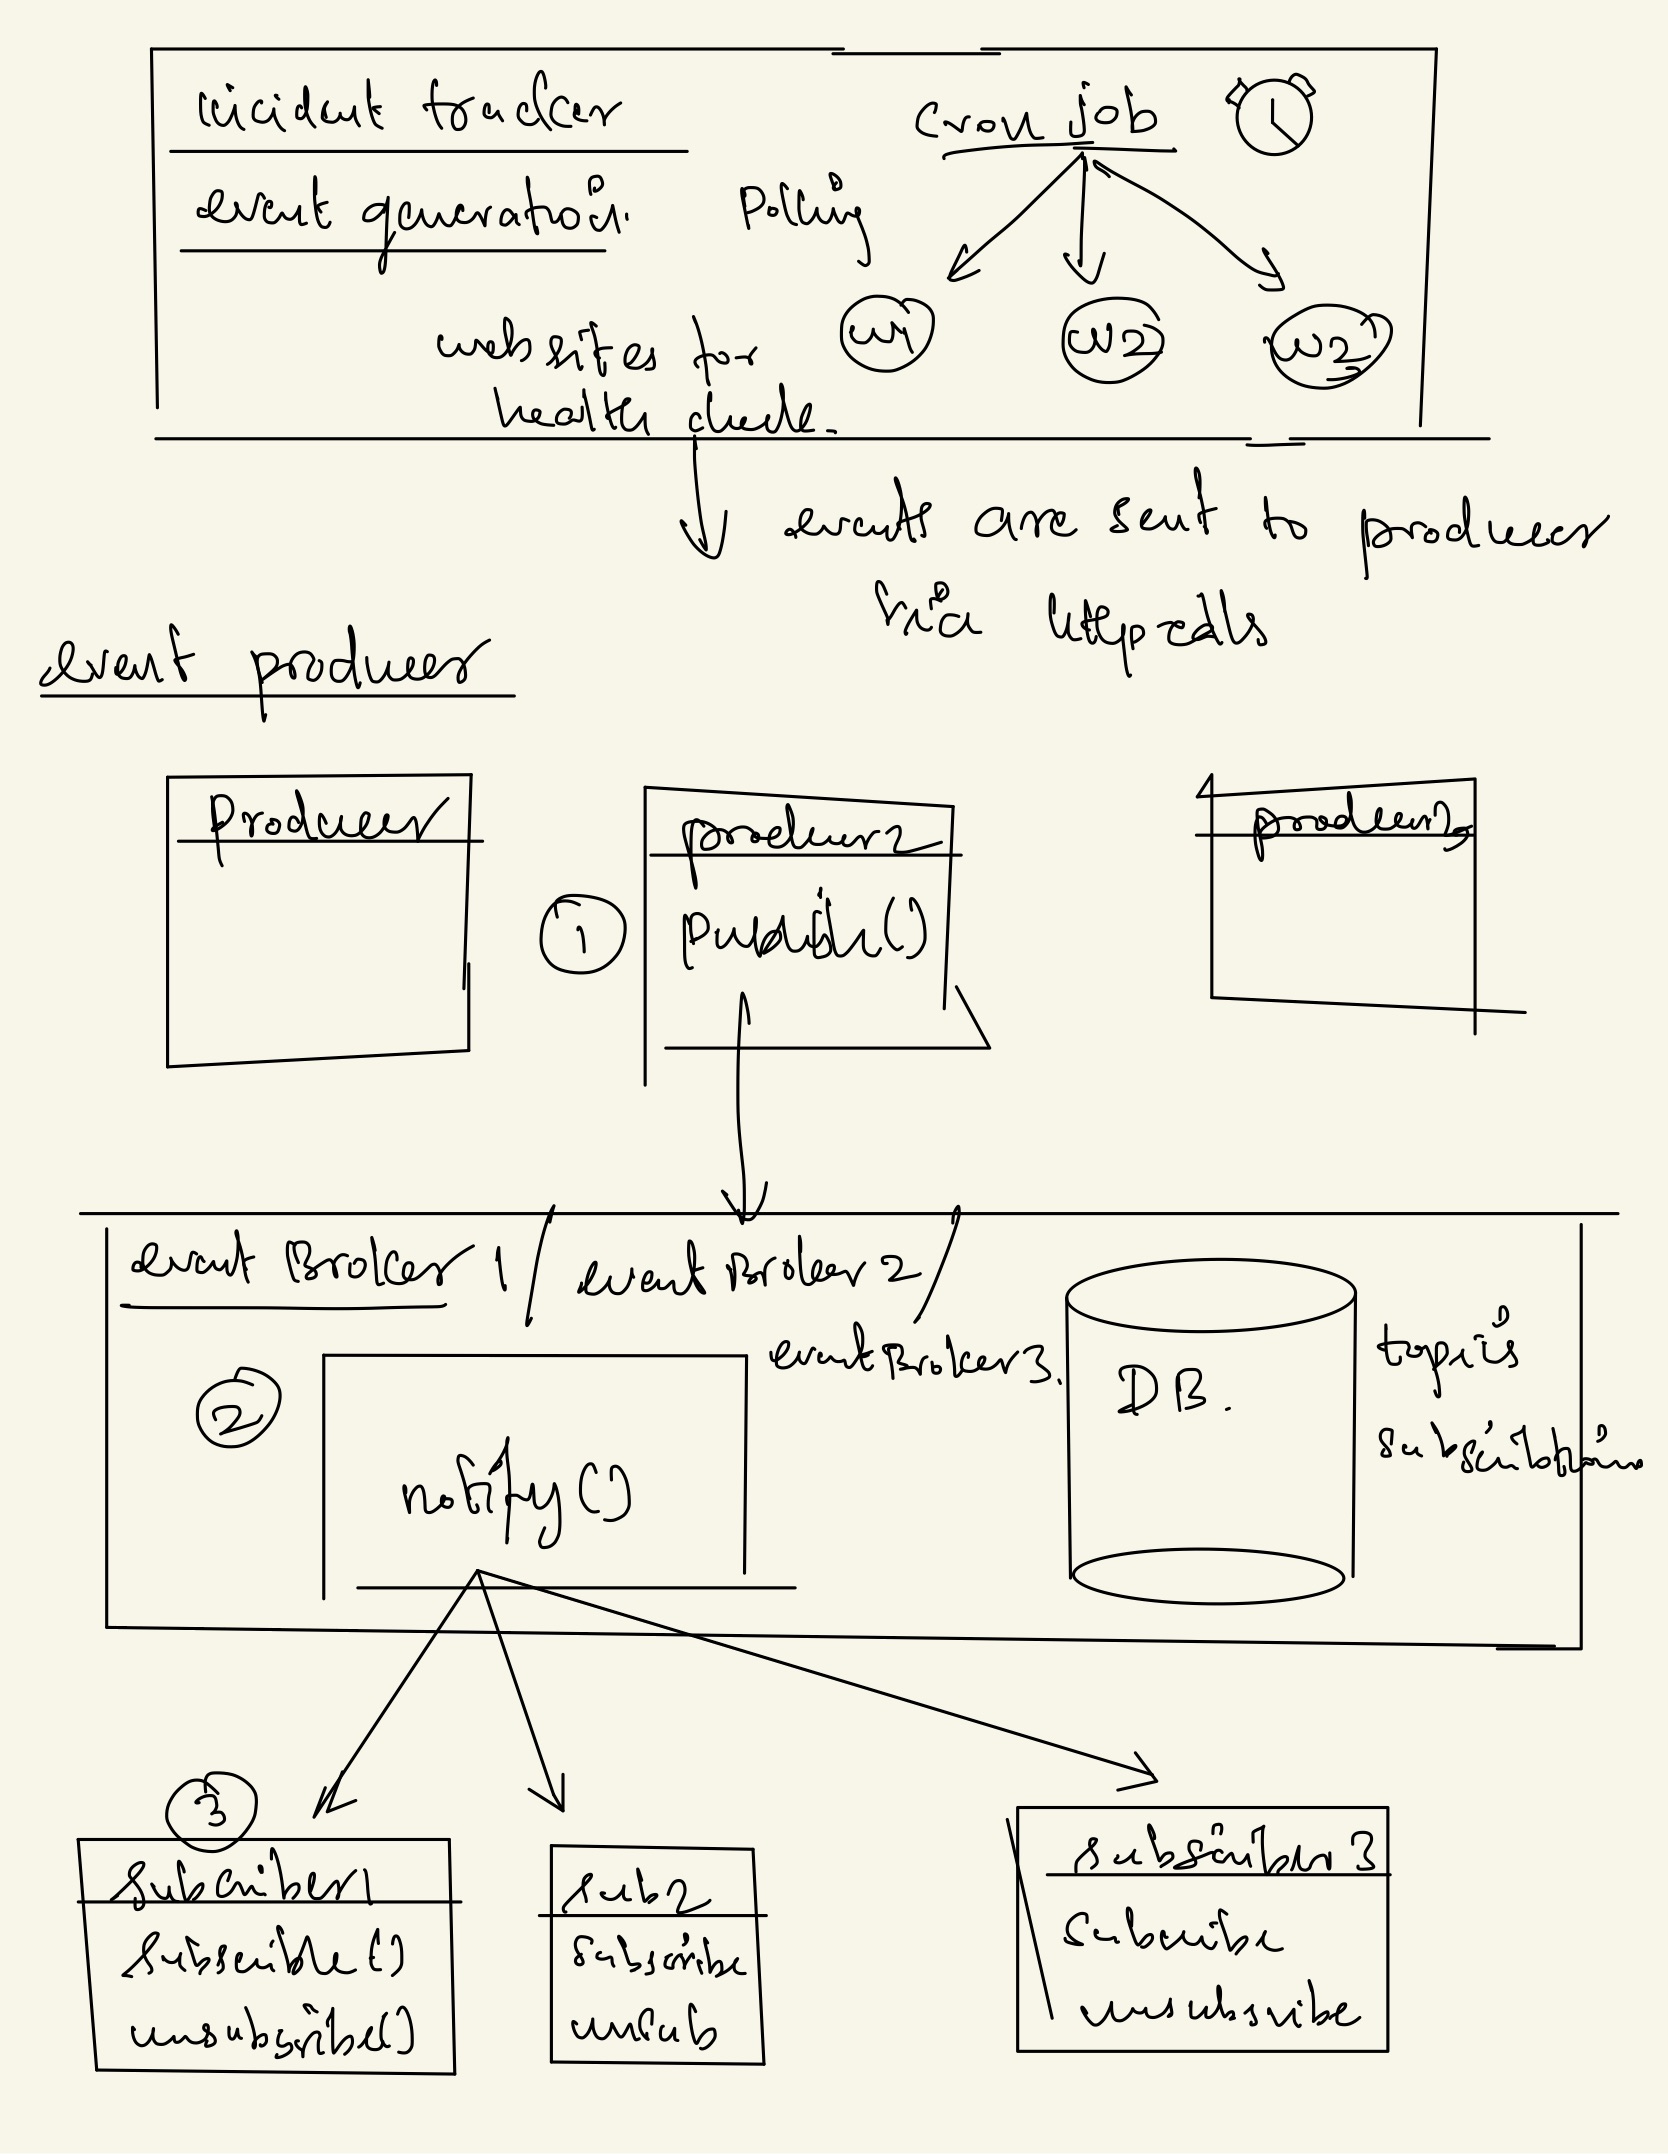 incident tracker
cron job
event generation.
Polling
w1
w2
w3
websites for
health check.
events are sent to producer
via http calls
event producer
Producer
producer2
producer3
1
publish()
event Broker 1 / event Broker 2 /
event Broker 3.
DB.
topics
2
notify()
3
subscriber1
subscribe()
unsubscribe()
sub2
subscribe
unsub
subscriber 3
subscribe
unsubsribe